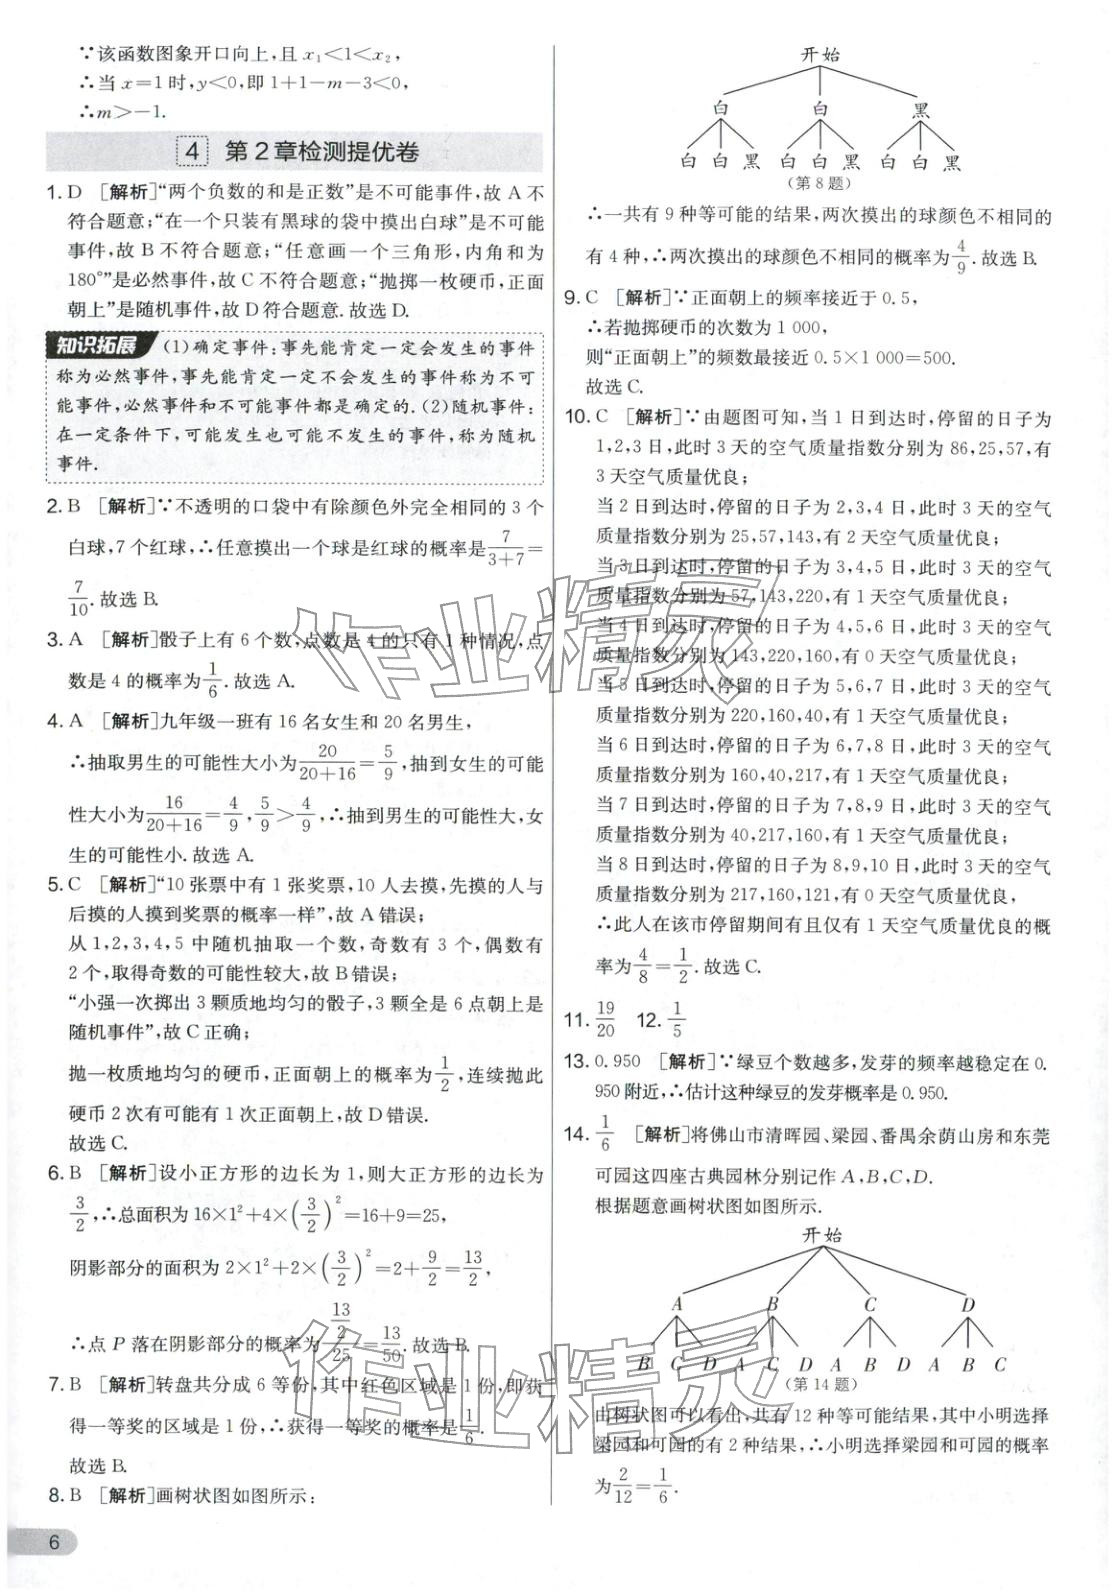 ∵该函数图象开口向上,且 x₁<1<x₂,
∴当 x=1 时,y<0,即 1+1-m-3<0,
∴m>-1.
4 第 2 章检测提优卷
1. D [解析]“两个负数的和是正数”是不可能事件,故 A 不
符合题意;“在一个只装有黑球的袋中摸出白球”是不可能
事件,故 B 不符合题意;“任意画一个三角形,内角和为
180°”是必然事件,故 C 不符合题意;“抛掷一枚硬币,正面
朝上”是随机事件,故 D 符合题意. 故选 D.
知识拓展 (1)确定事件:事先能肯定一定会发生的事件
称为必然事件,事先能肯定一定不会发生的事件称为不可
能事件,必然事件和不可能事件都是确定的. (2)随机事件:
在一定条件下,可能发生也可能不发生的事件,称为随机
事件.
2. B [解析]∵不透明的口袋中有除颜色外完全相同的 3 个
白球,7 个红球,∴任意摸出一个球是红球的概率是 7/(3+7) =
7/10. 故选 B.
3. A [解析]骰子上有 6 个数,点数是 4 的只有 1 种情况,点
数是 4 的概率为 1/6. 故选 A.
4. A [解析]九年级一班有 16 名女生和 20 名男生,
∴抽取男生的可能性大小为 20/(20+16) = 5/9,抽到女生的可能
性大小为 16/(20+16) = 4/9, 5/9 > 4/9,∴抽到男生的可能性大,女
生的可能性小. 故选 A.
5. C [解析]“10 张票中有 1 张奖票,10 人去摸,先摸的人与
后摸的人摸到奖票的概率一样”,故 A 错误;
从 1,2,3,4,5 中随机抽取一个数,奇数有 3 个,偶数有
2 个,取得奇数的可能性较大,故 B 错误;
“小强一次掷出 3 颗质地均匀的骰子,3 颗全是 6 点朝上是
随机事件”,故 C 正确;
抛一枚质地均匀的硬币,正面朝上的概率为 1/2,连续抛此
硬币 2 次有可能有 1 次正面朝上,故 D 错误.
故选 C.
6. B [解析]设小正方形的边长为 1,则大正方形的边长为
3/2,∴总面积为 16×1²+4×(3/2)²=16+9=25,
阴影部分的面积为 2×1²+2×(3/2)²=2+9/2=13/2,
∴点 P 落在阴影部分的概率为 (13/2)/25=13/50. 故选 B.
7. B [解析]转盘共分成 6 等份,其中红色区域是 1 份,即获
得一等奖的区域是 1 份,∴获得一等奖的概率是 1/6.
故选 B.
8. B [解析]画树状图如图所示:
6
开始
白 白 黑
白 白 黑 白 白 黑 白 白 黑
(第 8 题)
∴一共有 9 种等可能的结果,两次摸出的球颜色不相同的
有 4 种,∴两次摸出的球颜色不相同的概率为 4/9. 故选 B.
9. C [解析]∵正面朝上的频率接近于 0.5,
∴若抛掷硬币的次数为 1 000,
则“正面朝上”的频数最接近 0.5×1 000=500.
故选 C.
10. C [解析]∵由题图可知,当 1 日到达时,停留的日子为
1,2,3 日,此时 3 天的空气质量指数分别为 86,25,57,有
3 天空气质量优良;
当 2 日到达时,停留的日子为 2,3,4 日,此时 3 天的空气
质量指数分别为 25,57,143,有 2 天空气质量优良;
当 3 日到达时,停留的日子为 3,4,5 日,此时 3 天的空气
质量指数分别为 57,143,220,有 1 天空气质量优良;
当 4 日到达时,停留的日子为 4,5,6 日,此时 3 天的空气
质量指数分别为 143,220,160,有 0 天空气质量优良;
当 5 日到达时,停留的日子为 5,6,7 日,此时 3 天的空气
质量指数分别为 220,160,40,有 1 天空气质量优良;
当 6 日到达时,停留的日子为 6,7,8 日,此时 3 天的空气
质量指数分别为 160,40,217,有 1 天空气质量优良;
当 7 日到达时,停留的日子为 7,8,9 日,此时 3 天的空气
质量指数分别为 40,217,160,有 1 天空气质量优良;
当 8 日到达时,停留的日子为 8,9,10 日,此时 3 天的空气
质量指数分别为 217,160,121,有 0 天空气质量优良,
∴此人在该市停留期间有且仅有 1 天空气质量优良的概
率为 4/8=1/2. 故选 C.
11. 19/20 12. 1/5
13. 0.950 [解析]∵绿豆个数越多,发芽的频率越稳定在 0.
950 附近,∴估计这种绿豆的发芽概率是 0.950.
14. 1/6 [解析]将佛山市清晖园、梁园、番禺余荫山房和东莞
可园这四座古典园林分别记作 A,B,C,D.
根据题意画树状图如图所示.
开始
A B C D
B C D A C D A B D A B C
(第 14 题)
由树状图可以看出,共有 12 种等可能结果,其中小明选择
梁园和可园的有 2 种结果,∴小明选择梁园和可园的概率
为 2/12=1/6.
作业精灵
作业精灵